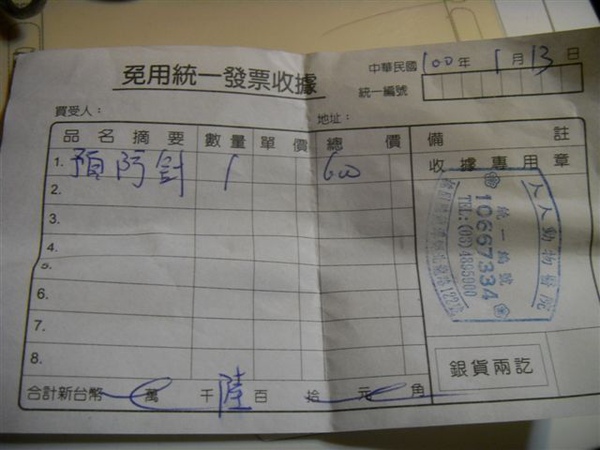 免用統一發票收據
中華民國 100 年 1 月 13 日
統一編號
買受人： 地址：
品名摘要 數量 單價 總價 備註
1. 預防針 1 600 收據專用章
2.
3.
4.
5.
6.
7.
8.
人人動物醫院
統一編號
10667334
TEL:(03)4855900
銀貨兩訖
合計新台幣 萬 千 陸 百 拾 元 角